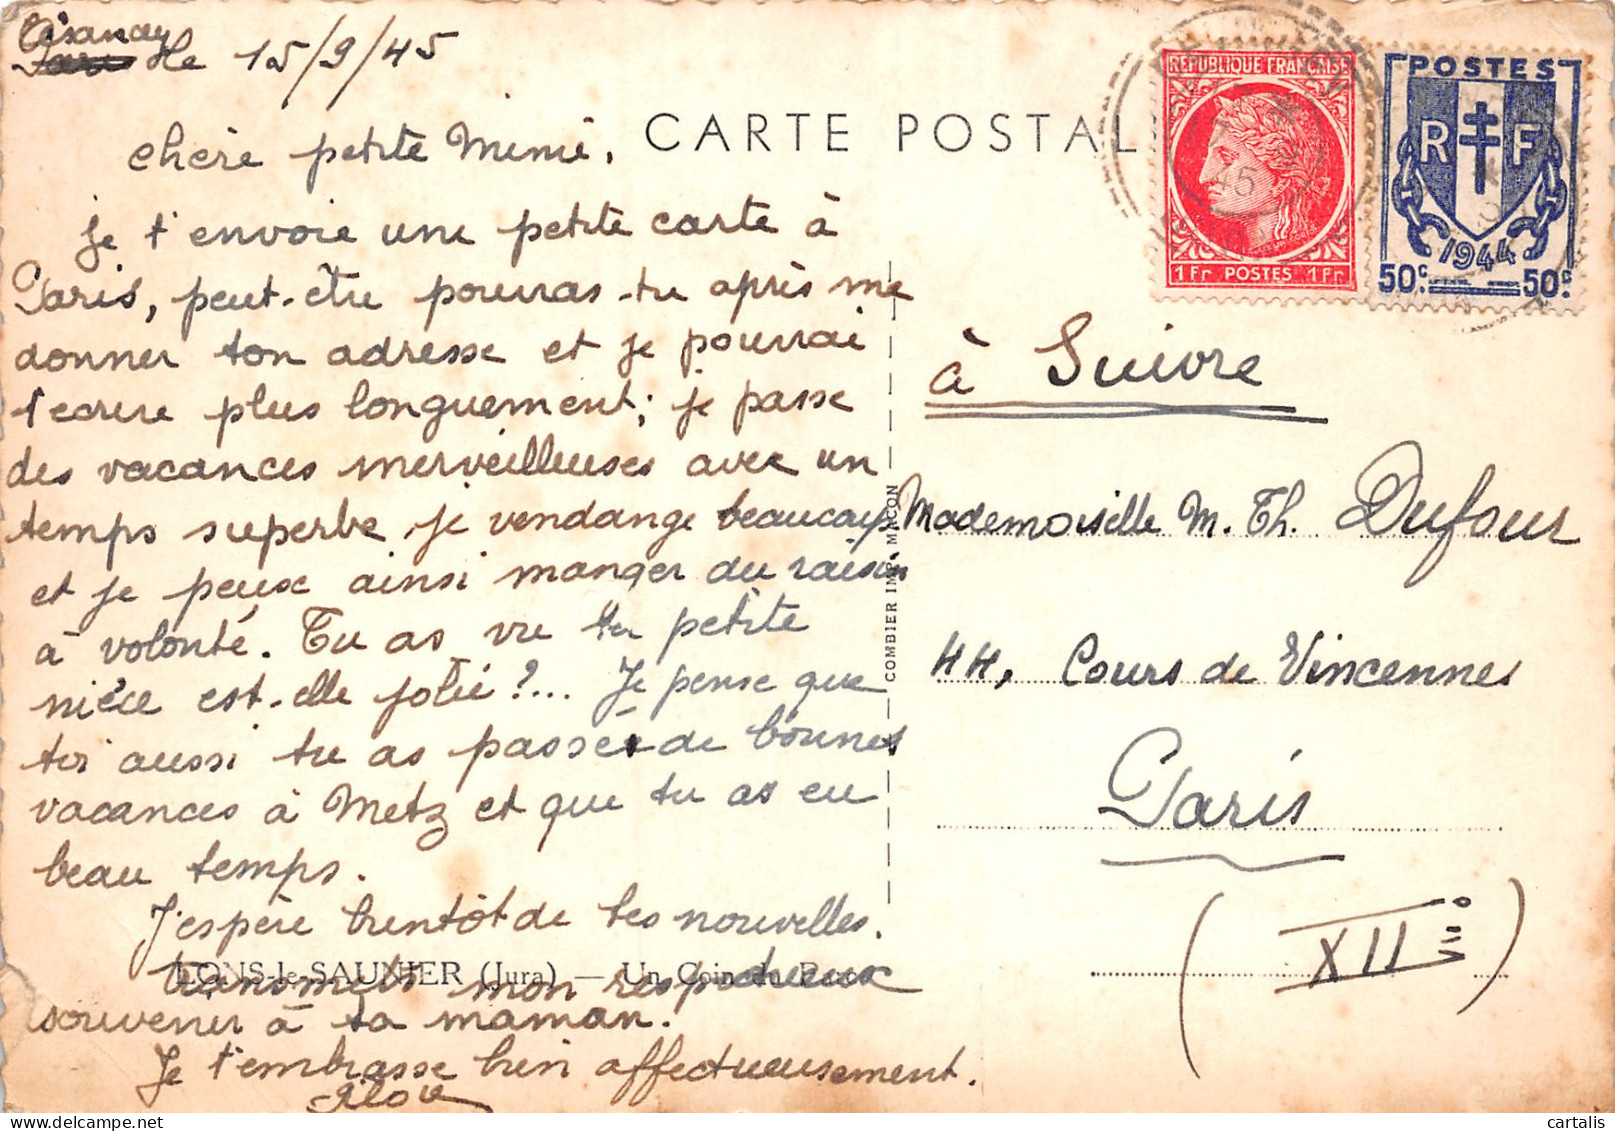 le 15/9/45
CARTE POSTAL
chère petite Mimi.
je t'envoie une petite carte à
Paris, peut-être pourras-tu après me
donner ton adresse et je pourrai
t'ecrire plus longuement; je passe
des vacances merveilleuses avec un
temps superbe je vendange beaucoup
et je peux ainsi manger du raisin
à volonté. Tu as vu ta petite
nièce est-elle jolie?... Je pense que
toi aussi tu as passé de bonnes
vacances à Metz et que tu as eu
beau temps.
J'espère bientôt de tes nouvelles.
transmets mon respectueux
souvenir à ta maman.
Je t'embrasse bien affectueusement.
LONS-le-SAUNIER (Jura) — Un Coin du Parc
COMBIER IMP. MACON
REPUBLIQUE FRANÇAISE
1Fr POSTES 1Fr
POSTES
R F
1944
50c. 50c.
à Suivre
Mademoiselle M. Th. Dufour
44, Cours de Vincennes
Paris
(XII)
cartalis